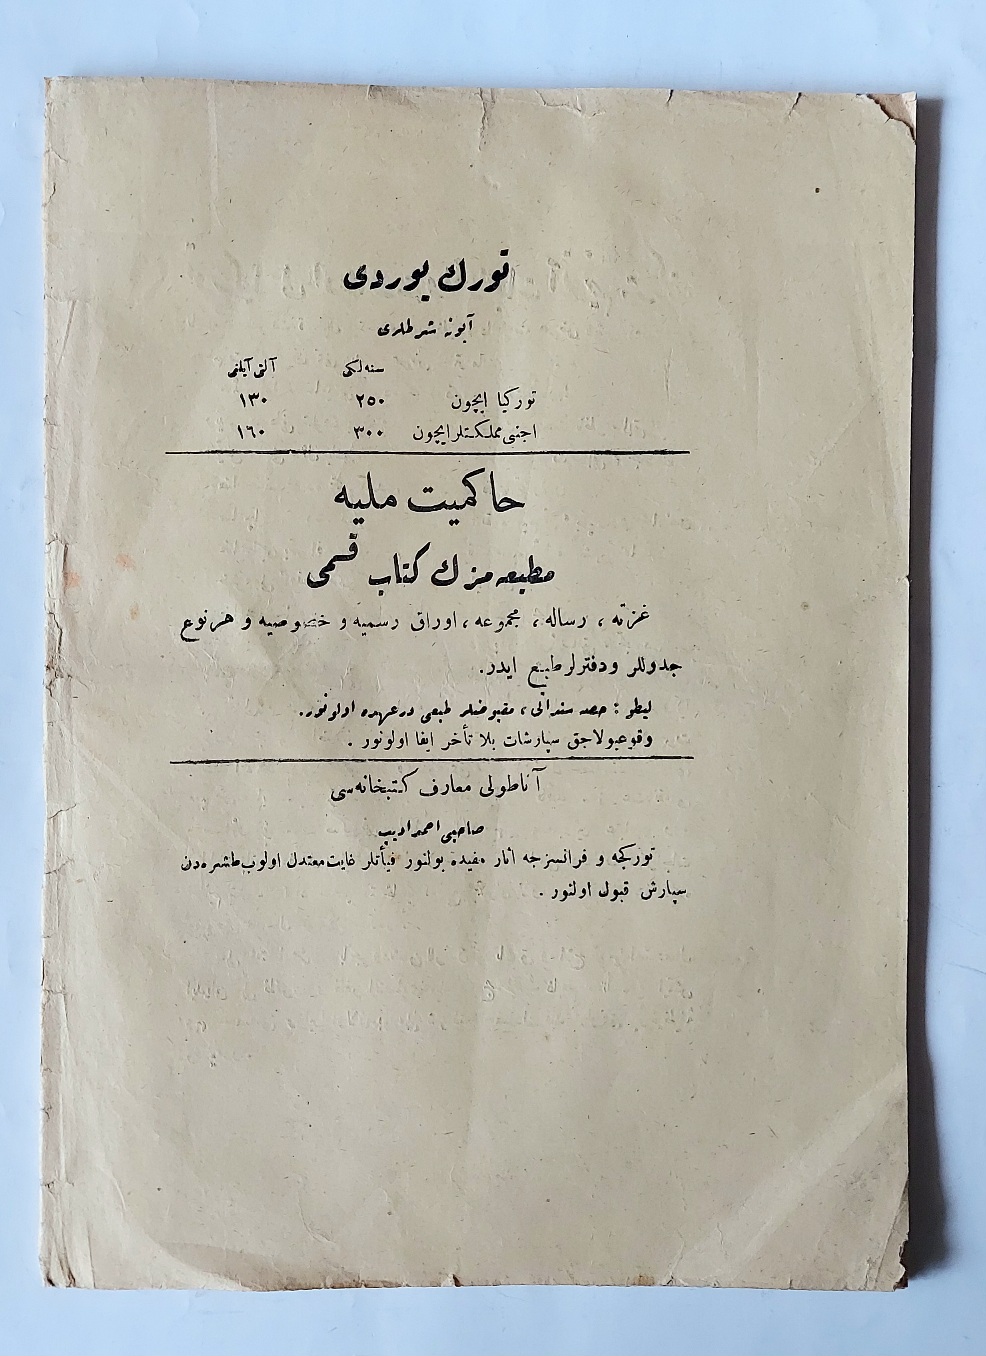 تورك يوردى
آبونه شرطلرى
سنه لكى آلتى آيلغى
توركيا ايچون ٢٥٠ ١٣٠
اجنبى مملكتلر ايچون ٣٠٠ ١٦٠
حاكميت مليه
مطبعه مزك كتاب قسمى
غزته ، رساله ، مجموعه ، اوراق رسميه و خصوصيه و هر نوع
جدوللر و دفترلر طبع ايدر.
ليطو : حصه سنداتى ، مقبوضلر طبعى درعهده اولونور.
وقوعبولاجق سپارشات بلا تأخر ايفا اولونور .
آناطولى معارف كتبخانه سى
صاحبى احمد اديب
توركجه و فرانسزجه آثار مفيده بولنور فيأتلر غايت معتدل اولوب طشره دن
سپارش قبول اولنور .